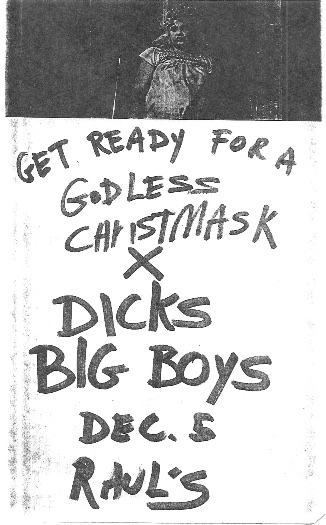 GET READY FOR A
GODLESS
CHRISTMASK
X
DICKS
BIG BOYS
DEC. 5
RAUL'S